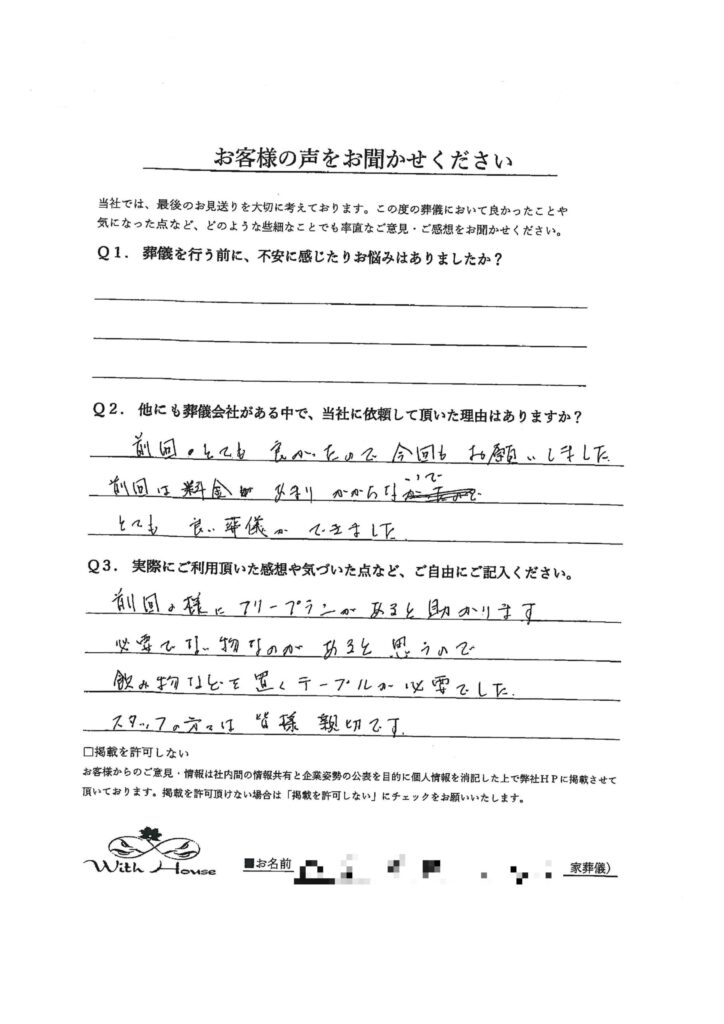 お客様の声をお聞かせください
当社では、最後のお見送りを大切に考えております。この度の葬儀において良かったことや
気になった点など、どのような些細なことでも率直なご意見・ご感想をお聞かせください。
Q1. 葬儀を行う前に、不安に感じたりお悩みはありましたか？
Q2. 他にも葬儀会社がある中で、当社に依頼して頂いた理由はありますか？
前回とても 良かったので 今回も お願いしました
前回は料金 あまり かからないで
とても 良い葬儀が できました
Q3. 実際にご利用頂いた感想や気づいた点など、ご自由にご記入ください。
前回の様に フリープランが あると助かります
必要でない物なのが あると 思うので
飲み物などを 置くテーブルが必要でした.
スタッフの方々は 皆様 親切です
□掲載を許可しない
お客様からのご意見・情報は社内間の情報共有と企業姿勢の公表を目的に個人情報を消記した上で弊社HPに掲載させて
頂いております。掲載を許可頂けない場合は「掲載を許可しない」にチェックをお願いいたします。
With House
■お名前 家葬儀）